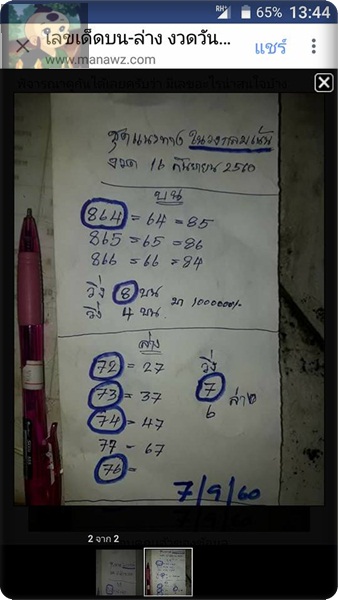 65% 13:44
เลขเด็ดบน-ล่าง งวดวัน...
www.manawz.com
แชร์
ชุดแนวทาง
งวด 16 กันยายน 2560
บน
864 = 64 = 85
865 = 65 = 86
866 = 66 = 84
วิ่ง 8 บน
วิ่ง 4 บน
ล่าง
72 = 27
73 = 37
74 = 47
77 - 67
76 =
วิ่ง
7
6 ล่าง
7/9/60
2 จาก 2